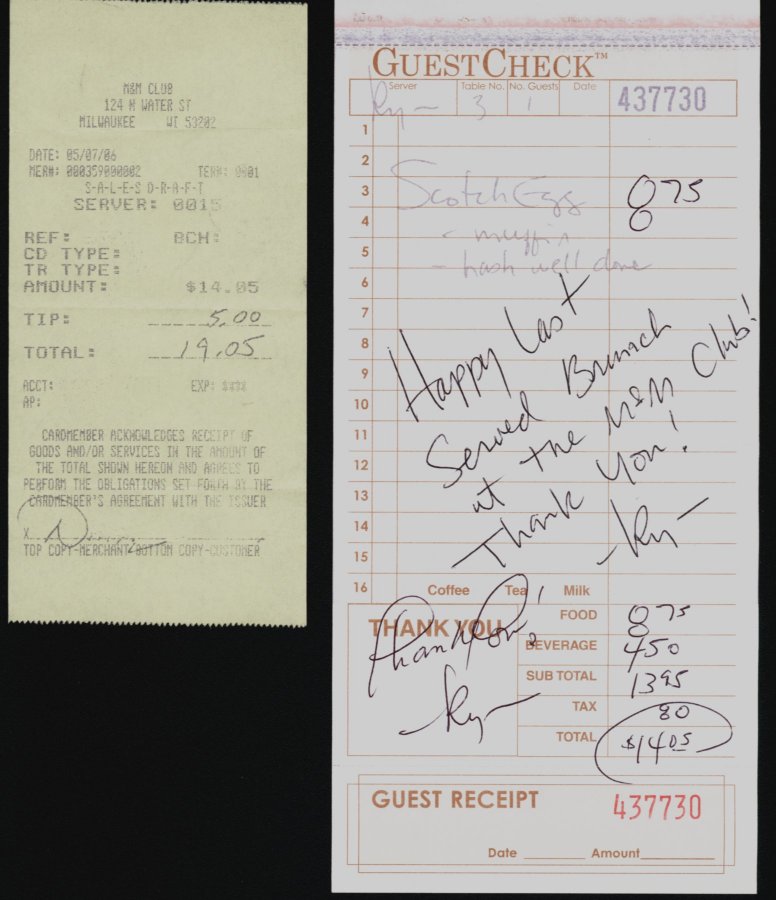 M&M CLUB
124 N WATER ST
MILWAUKEE WI 53202
DATE: 05/07/06
MER#: 000359000002 TER#: 0001
S-A-L-E-S D-R-A-F-T
SERVER: 0015
REF: BCH:
CD TYPE:
TR TYPE:
AMOUNT: $14.05
TIP: 5.00
TOTAL: 19.05
ACCT: EXP: ****
AP:
CARDMEMBER ACKNOWLEDGES RECEIPT OF
GOODS AND/OR SERVICES IN THE AMOUNT OF
THE TOTAL SHOWN HEREON AND AGREES TO
PERFORM THE OBLIGATIONS SET FORTH BY THE
CARDMEMBER'S AGREEMENT WITH THE ISSUER
X
TOP COPY-MERCHANT BOTTOM COPY-CUSTOMER
GUESTCHECK™
Server Table No. No. Guests Date
Ry 3 1 437730
1
2
3 Scotch Egg 8 75
4 - muffin
5 - hash well done
6
7
8
9
10
11
12
13
14
15
16
Happy Last
Served Brunch
at the M&M Club!
Thank You!
-Ry-
Coffee Tea Milk
THANK YOU
Thank You!
-Ry-
FOOD 8 75
BEVERAGE 4 50
SUB TOTAL 13 25
TAX 80
TOTAL $14 05
GUEST RECEIPT 437730
Date Amount